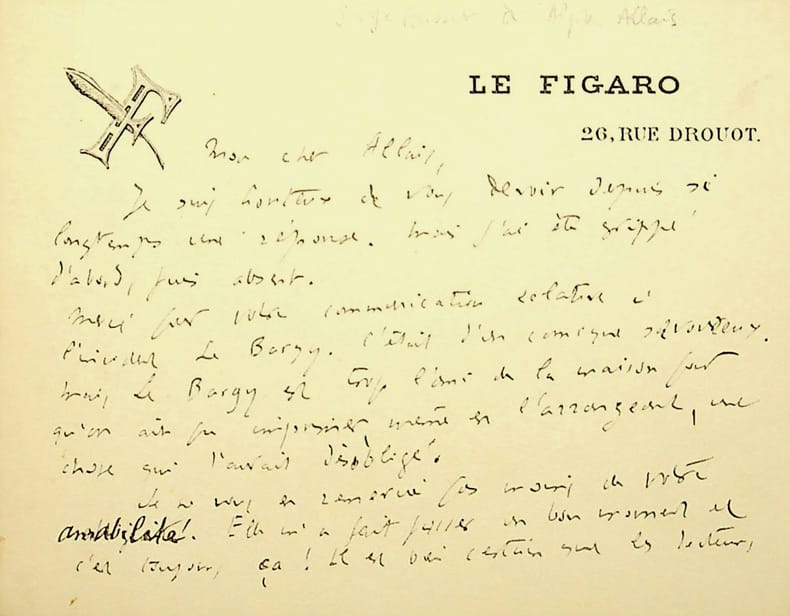 à Alph Allais
LE FIGARO
26, RUE DROUOT.
Mon cher Allais,
Je suis honteux de vous devoir depuis si
longtemps une réponse. Mais j'ai été grippé
d'abord, puis absent.
Merci pour votre communication relative à
l'incident Le Bargy. C'était d'un comique savoureux.
Mais Le Bargy est trop l'ami de la maison pour
qu'on ait pu imprimer même en l'arrangeant, une
chose qui l'aurait désobligé.
Je ne vous en remercie pas moins de votre
amabilité. Elle m'a fait passer un bon moment et
c'est toujours ça ! Il est bien certain que les lecteurs,